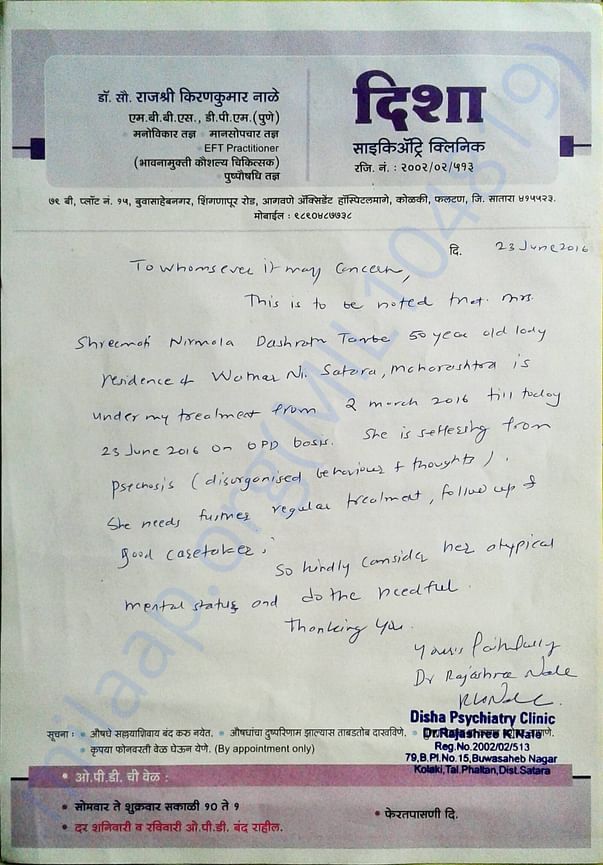 डॉ. सौ. राजश्री किरणकुमार नाळे
एम.बी.बी.एस., डी.पी.एम.(पुणे)
मनोविकार तज्ञ मानसोपचार तज्ञ
EFT Practitioner
(भावनामुक्ती कौशल्य चिकित्सक)
पुष्पौषधि तज्ञ
दिशा
साइकिॲट्रि क्लिनिक
रजि. नं. : २००२/०२/५१३
७९ बी, प्लॉट नं. १५, बुवासाहेबनगर, शिंगणापूर रोड, आगवणे ॲक्सिडेंट हॉस्पिटलमागे, कोळकी, फलटण, जि. सातारा ४१५५२३.
मोबाईल : ९८९०४८७७३८
दि. 23 June 2016
To whomsever it may concern,
This is to be noted that. mrs.
Shreemati Nirmala Dashrath Tambe 50 year old lady
residence of Wathar Ni. Satara, Maharashtra is
under my treatment from 2 march 2016 till today
23 June 2016 on OPD basis. She is seffering from
psychosis (disorganised behaviour & thoughts).
She needs further regular treatment, follow up &
good caretaker.
So kindly consider her atypical
mental status and do the needful.
Thanking You.
Yours faithfully
Dr Rajashree Nale
milaap.org(MIL104319)
Disha Psychiatry Clinic
Dr.Rajashree K.Nale
Reg.No.2002/02/513
79,B.Pl.No.15,Buwasaheb Nagar
Kolaki,Tal.Phaltan,Dist.Satara
सूचना : • औषधे सल्ल्याशिवाय बंद करु नयेत. • औषधांचा दुष्परिणाम झाल्यास ताबडतोब दाखविणे.
• कृपया फोनवरती वेळ घेऊन येणे. (By appointment only)
• ओ.पी.डी. ची वेळ :
• सोमवार ते शुक्रवार सकाळी १० ते १
• दर शनिवारी व रविवारी ओ.पी.डी. बंद राहील.
• फेरतपासणी दि.